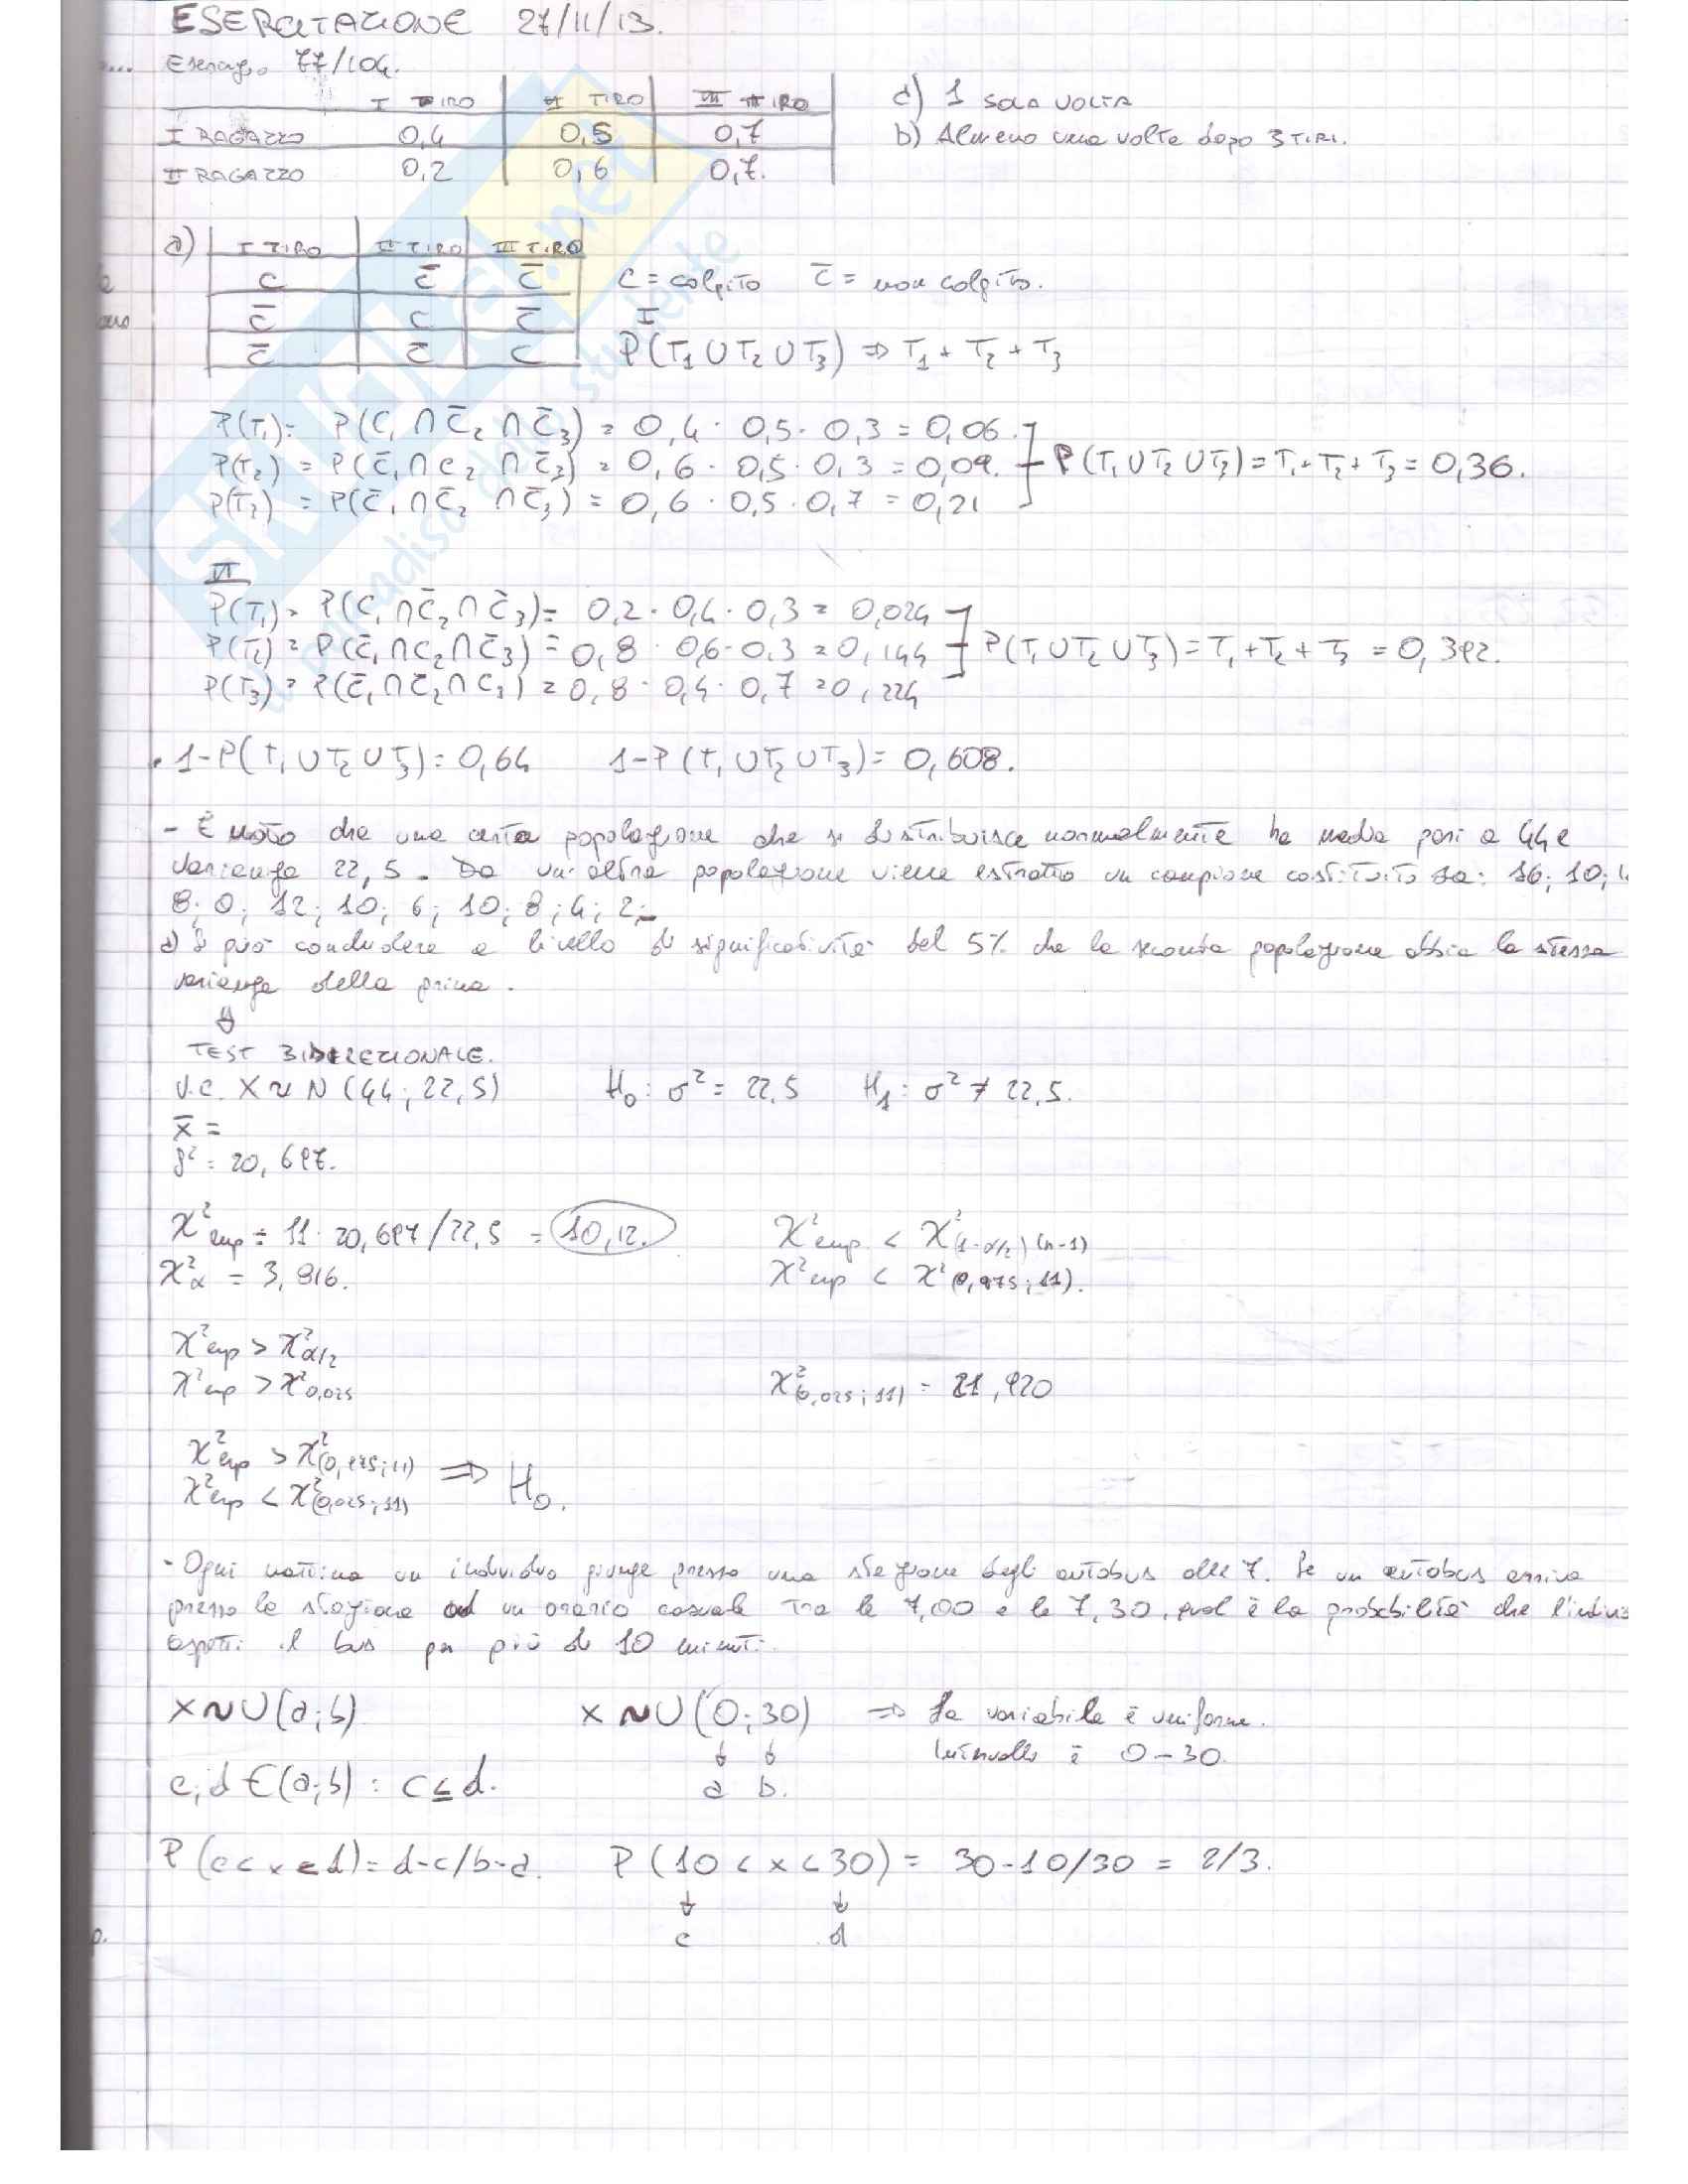 ESERCITAZIONE 27/11/13.
Esercizio 77/104.
I TIRO II TIRO III TIRO
I RAGAZZO 0,4 0,5 0,7
II RAGAZZO 0,2 0,6 0,7.
a) 1 SOLA VOLTA
b) Almeno una volta dopo 3 TIRI.
a) I TIRO II TIRO III TIRO
C C̄ C̄
C̄ C C̄
C̄ C̄ C
C = colpito C̄ = non colpito.
I
P(T₁ ∪ T₂ ∪ T₃) ⇒ T₁ + T₂ + T₃
P(T₁) = P(C₁ ∩ C̄₂ ∩ C̄₃) = 0,4 · 0,5 · 0,3 = 0,06.
P(T₂) = P(C̄₁ ∩ C₂ ∩ C̄₃) = 0,6 · 0,5 · 0,3 = 0,09. P(T₁ ∪ T₂ ∪ T₃) = T₁ + T₂ + T₃ = 0,36.
P(T₂) = P(C̄₁ ∩ C̄₂ ∩ C̄₃) = 0,6 · 0,5 · 0,7 = 0,21
II
P(T₁) = P(C₁ ∩ C̄₂ ∩ C̄₃) = 0,2 · 0,4 · 0,3 = 0,024
P(T₂) = P(C̄₁ ∩ C₂ ∩ C̄₃) = 0,8 · 0,6 · 0,3 = 0,144 P(T₁ ∪ T₂ ∪ T₃) = T₁ + T₂ + T₃ = 0,392.
P(T₃) = P(C̄₁ ∩ C̄₂ ∩ C₃) = 0,8 · 0,4 · 0,7 = 0,224
· 1-P(T₁ ∪ T₂ ∪ T₃) = 0,64 1-P(T₁ ∪ T₂ ∪ T₃) = 0,608.
- È noto che una certa popolazione che si distribuisce normalmente ha media pari a 44 e
varianza 22,5. Da un'altra popolazione viene estratto un campione costituito da: 16; 10; 4
8; 0; 12; 10; 6; 10; 8; 4; 2;
a) Si può concludere a livello di significatività del 5% che la seconda popolazione abbia la stessa
varianza della prima.
⇓
TEST BIDIREZIONALE.
V.C. X ~ N (44; 22,5) H₀: σ² = 22,5 H₁: σ² ≠ 22,5.
x̄ =
s² = 20,697.
χ²emp = 11 · 20,697/22,5 = 10,12. χ²emp < χ²(1-α/2)(n-1)
χ²α = 3,816. χ²emp < χ²(0,975; 11).
χ²emp > χ²α/2
χ²emp > χ²0,025 χ²(0,025; 11) = 21,920
χ²emp > χ²(0,975; 11)
χ²emp < χ²(0,025; 11) ⇒ H₀.
- Ogni mattina un individuo giunge presso una stazione degli autobus alle 7. Se un autobus arriva
presso la stazione ad un orario casuale tra le 7,00 e le 7,30, qual è la probabilità che l'indivi
aspetti il bus per più di 10 minuti.
X ~ U(a; b) X ~ U(0; 30) ⇒ La variabile è uniforme.
↓ ↓ Intervallo è 0-30.
c, d ∈ (a; b) : c ≤ d. a b.
P(c < x < d) = d-c/b-a. P(10 < x < 30) = 30-10/30 = 2/3.
↓ ↓
c d